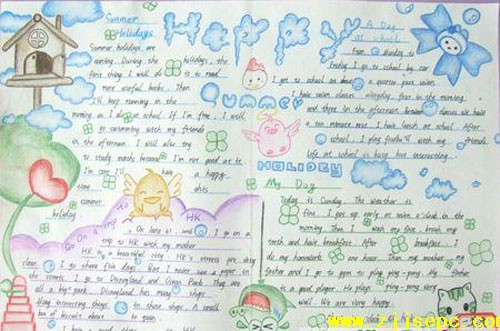 Happy
Summer
Holiday
Summer
Holidays
Summer holidays are
coming. During the holidays, the
first thing I will do is to read
more useful books. Then
I'll keep running in the
morning as I do at school. If I'm free, I will
go swimming with my friends
in the afternoon. I will also try
to study maths because I'm not good at it.
I'm sure I'll have a happy
summer
holiday
A Day
at school
From Monday to
Friday I go to school by car
I get to school at a quarter past seven.
I have seven classes everyday, four in the morning
and three in the afternoon. Between classes we have
a ten minute rest. I have lunch at school. After
school, I play with my friends.
Life at school is busy but interesting.
On A Trip To HK
I go on a
trip to HK with my mother
HK is a beautiful city. HK's streets are very
clean. I go there five days. But I never see a paper in
the streets. I go to Disneyland and Ocean Park. They are
all a big park. Disneyland has many shops
in those shops. A small
box of biscuit about
My Day
Today is Sunday. The weather is
fine. I get up early at seven o'clock in the
morning. Then I wash my face, brush my
teeth and have breakfast. After breakfast, I
do my homework for one hour. Then my
father and I go to gym to play ping-pong. My father
is a good player. He plays ping-pong very
well. We are very happy.
www.zjjsepc.cn